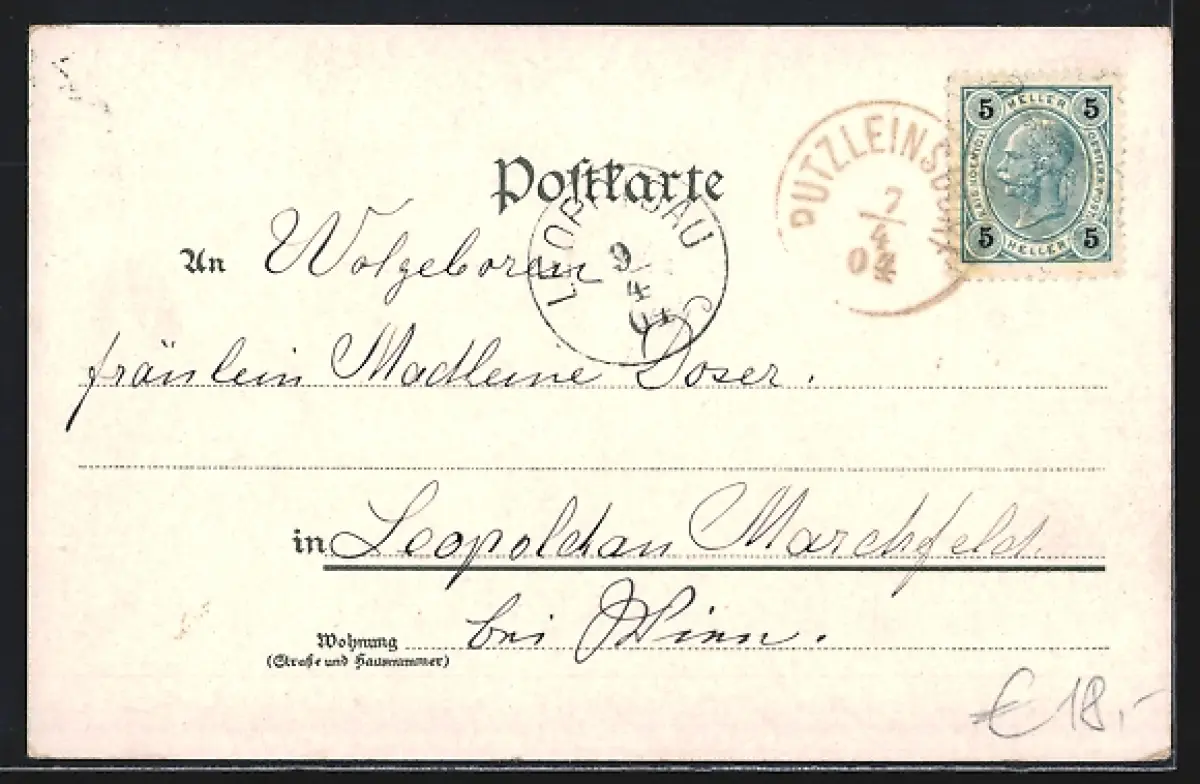 Postkarte
PUTZLEINSDORF
7/4
04
5 HELLER 5
5 HELLER 5
LEOPOLDAU
9
4
04
An Wolgeboren
fräulein Madleine Doser.
in Leopoldau Marchfeld
bei Wien.
Wohnung
(Straße und Hausnummer)
€ 18,-